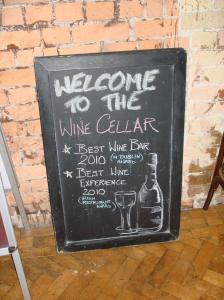 WELCOME
TO THE
WINE CELLAR
★ BEST WINE BAR
2010 (IN DUBLIN)
★ BEST WINE
EXPERIENCE
2010
(IRISH
RESTAURANT